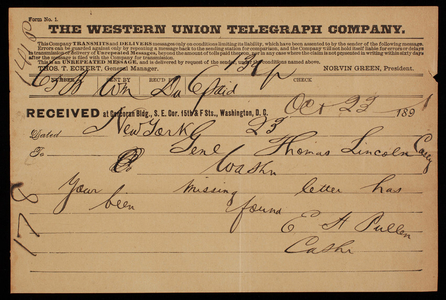 Form No. 1.
THE WESTERN UNION TELEGRAPH COMPANY.
This Company TRANSMITS and DELIVERS messages only on conditions limiting its liability, which have been assented to by the sender of the following message.
Errors can be guarded against only by repeating a message back to the sending station for comparison, and the Company will not hold itself liable for errors or delays
in transmission or delivery of Unrepeated Messages, beyond the amount of tolls paid thereon, nor in any case where the claim is not presented in writing within sixty days
after the message is filed with the Company for transmission.
This is an UNREPEATED MESSAGE, and is delivered by request of the sender, under the conditions named above.
THOS. T. ECKERT, General Manager. NORVIN GREEN, President.
NUMBER SENT BY REC'D BY CHECK
Wm Paid
RECEIVED at Corcoran Bldg., S. E. Cor. 15th & F Sts., Washington, D. C. Oct 23 1891
Dated New York 23
To Genl Thomas Lincoln Casey
Washn
Your missing letter has
been found
E A Pullen
Cashr
178